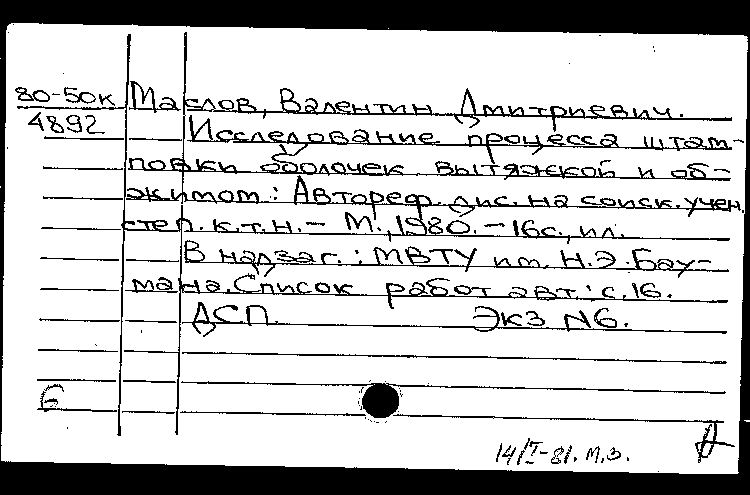 80-50к Маслов, Валентин Дмитриевич.
4892 Исследование процесса штам-
повки оболочек вытяжкой и об-
жимом: Автореф. дис. на соиск. учен.
степ. к.т.н. - М., 1980. - 16с., ил.
В надзаг.: МВТУ им. Н.Э. Бау-
мана. Список работ авт.: с. 16.
ДСП Экз N6.
6
14/I-81. М.З.